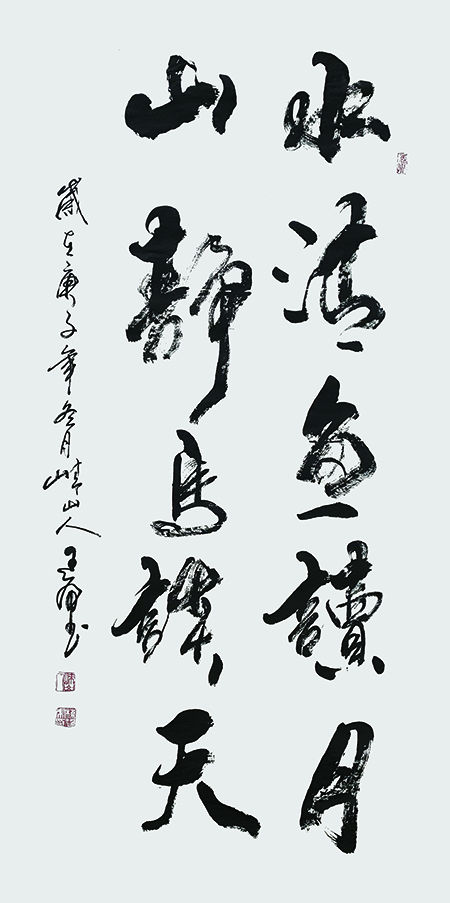 水清魚讀月
山靜鳥談天
歲在庚子年冬月 山人王 書